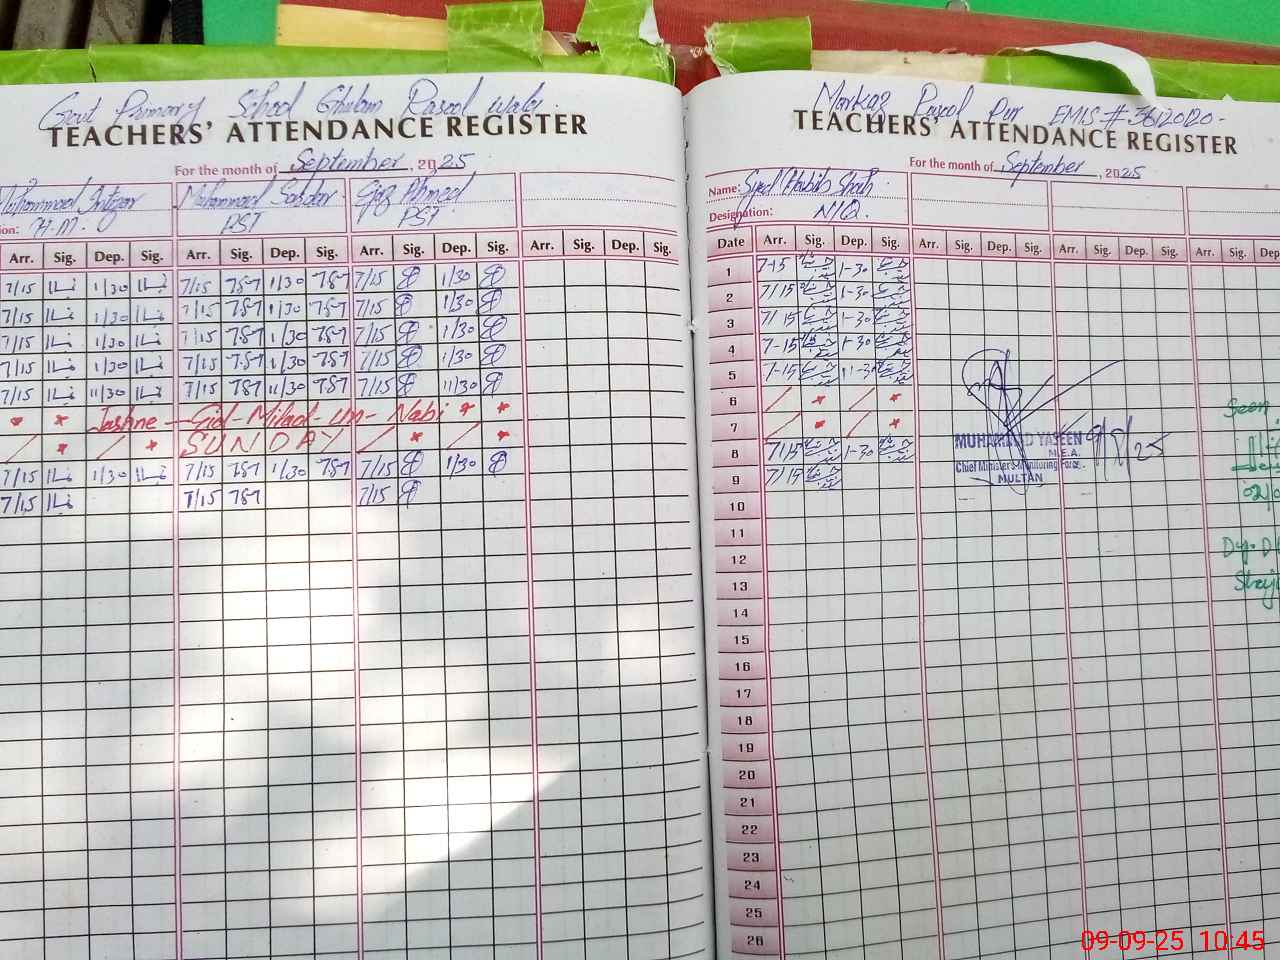 Govt Primary School Ghulam Rasool Wala
TEACHERS' ATTENDANCE REGISTER
For the month of September, 2025
Muhammad Safdar Ejaz Ahmed
H.M. PST PST
Arr. Sig. Dep. Sig. Arr. Sig. Dep. Sig. Arr. Sig. Dep. Sig. Arr. Sig. Dep. Sig.
7/15 1/30 7/15 787 1/30 787 7/15 1/30
7/15 1/30 7/15 787 1/30 787 7/15 1/30
7/15 1/30 7/15 787 1/30 787 7/15 1/30
7/15 1/30 7/15 787 1/30 787 7/15 1/30
7/15 11/30 7/15 787 11/30 787 7/15 11/30
Jashne-Eid-Milad un-Nabi
SUNDAY
7/15 1/30 7/15 787 1/30 787 7/15 1/30
7/15 7/15 787 7/15
Markaz Rasool Pur EMIS # 36120120-
TEACHERS' ATTENDANCE REGISTER
For the month of September, 2025
Name: Syed Habib Shah
Designation: N/Q.
Date Arr. Sig. Dep. Sig. Arr. Sig. Dep. Sig. Arr. Sig. Dep. Sig. Arr. Sig. Dep
1 7-15 1-30
2 7/15 1-30
3 7/15 1-30
4 7-15 1-30
5 7-15 11-30
6
7
8 7/15 1-30
9 7/15
10
11
12
13
14
15
16
17
18
19
20
21
22
23
24
25
26
MUHAMMAD YASEEN
M.E.A.
Chief Minister's Monitoring Force
MULTAN
9/9/25
Seen
09-09-25 10:45